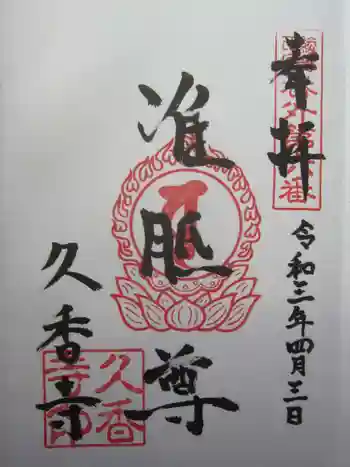 奉拝
令和三年四月三日
准胝尊
久香寺
久香
寺印